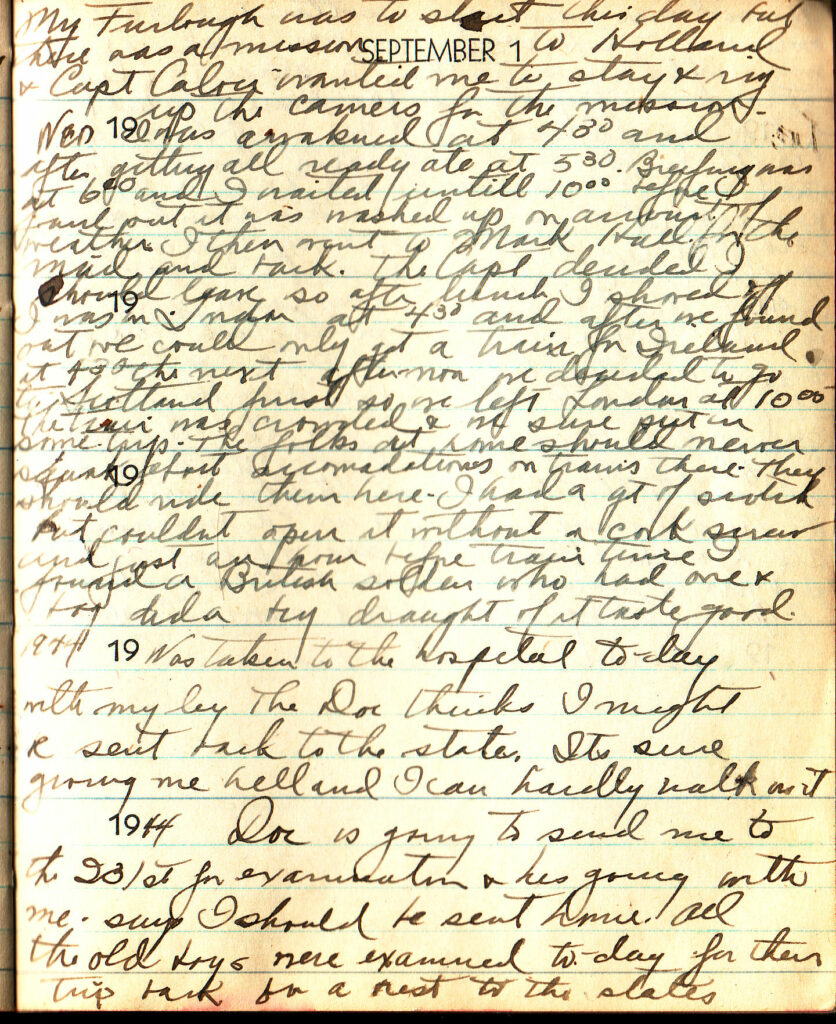 My Furlough was to start this day but
there was a mission to Holland
SEPTEMBER 1
& Capt wanted me to stay & rig
up the camers for the mission.
19 was awakned at 4 30 and
after getting all ready ate at 5 30. Briefing was
at 6 00 and I waited untill 10 00 before I
found out it was washed up on account of
weather. I then went to Mark Hall for the
mail and back. The Capt decided I
should leave so after lunch I shoved off
19
I was in at 4 30 and after we found
out we could only get a train for Ireland
at the next afternoon we decided to go
to Scotland first so we left London at 10 00
the train was crowded & we sure put in
some trip. The folks at home should never
about accomadationes on trains there. They
19
should ride them here. I had a qt of scotch
but couldnt open it without a cork screw
and just an hour before train time I
found a British soldier who had one &
boy did a big draught of it taste good.
1944 19 Was taken to the hospital to-day
with my leg The Doc thinks I might
be sent back to the states. Its sure
giving me hell and I can hardly walk on it
1944 Doc is going to send me to
the 231st for examination & hes going with
me. says I should be sent home. All
the old boys were examined to-day for their
trip back for a rest to the states